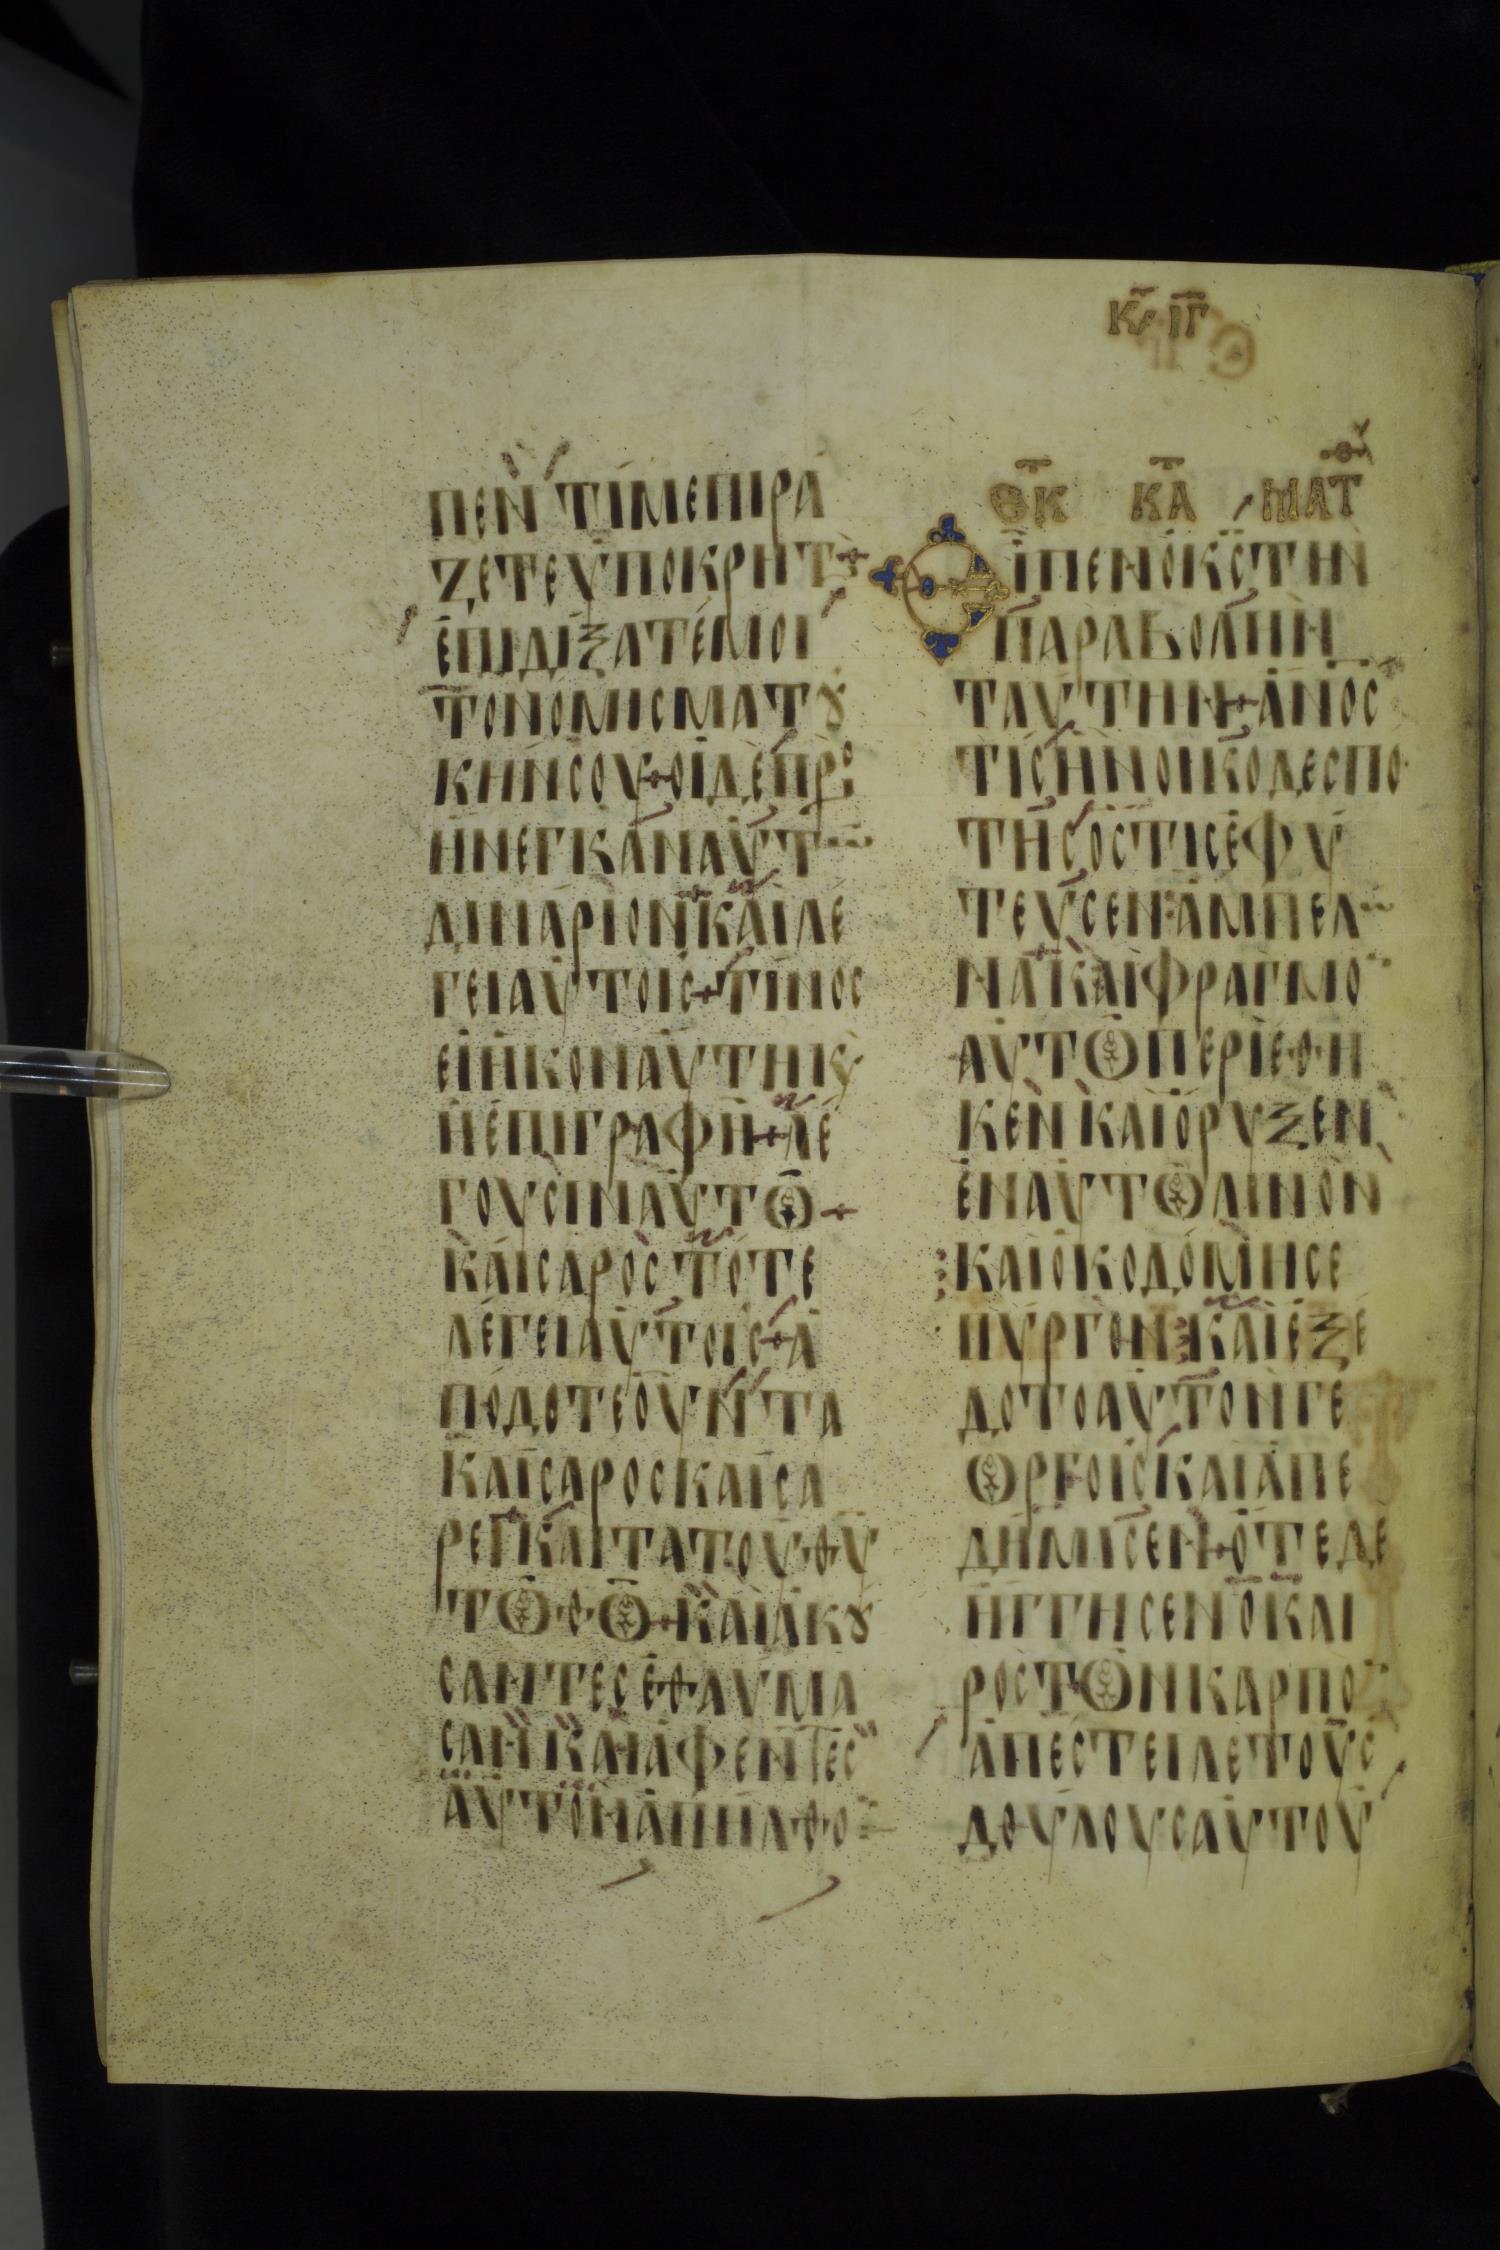 ΚΥ ΙΓ
ΠΕΝ ΤΙΜΕΠΙΡΑ
ΖΕΤΕΥΠΟΚΡΗΤ
ΕΠΙΔΙΞΑΤΕΜΟΙ
ΤΟΝΟΜΙΣΜΑΤȢ
ΚΗΝΣΟΥ+ΟΙΔΕΠΡΟ
ΗΝΕΓΚΑΝΑΥΤ
ΔΙΝΑΡΙΟΝ+ΚΑΙΛΕ
ΓΕΙΑΥΤΟΙΣ+ΤΙΝΟΣ
ΕΙΗΚΟΝΑΥΤΗΚ
ΗΕΠΙΓΡΑΦΗ+ΛΕ
ΓΟΥΣΙΝΑΥΤΩ+
ΚΑΙΣΑΡΟΣΤΟΤΕ
ΛΕΓΕΙΑΥΤΟΙΣ+Α
ΠΟΔΟΤΕΟΥΝΤΑ
ΚΑΙΣΑΡΟΣΚΑΙΣΑ
ΡΕΙ+ΚΑΙΤΑΤΟΥΘΥ
ΤΩΘΩ+ΚΑΙΑΚȢ
ΣΑΝΤΕΣΕΘΑΥΜΑ
ΣΑΝΚΑΙΑΦΕΝΤΕΣ
ΑΥΤΟΝΑΠΗΛΘΟ
ΘΚ ΚΑ ΜΑΤΘ
ΕΙΠΕΝΟΚΣΤΗΝ
ΠΑΡΑΒΟΛΗΝ
ΤΑΥΤΗΝ+ΑΝΟΣ
ΤΙΣΗΝΟΙΚΟΔΕΣΠΟ
ΤΗΣΟΣΤΙΣΕΦΥ
ΤΕΥΣΕΝΑΜΠΕΛ
ΝΑ+ΚΑΙΦΡΑΓΜΟ
ΑΥΤΩΠΕΡΙΕΘΗ
ΚΕΝΚΑΙΟΡΥΞΕΝ
ΕΝΑΥΤΩΛΙΝΟΝ
ΚΑΙΟΚΟΔΟΜΗΣΕ
ΠΥΡΓΟΝΚΑΙΕΞΕ
ΔΟΤΟΑΥΤΟΝΓΕ
ΩΡΓΟΙΣΚΑΙΑΠΕ
ΔΗΜΙΣΕΝ+ΟΤΕΔΕ
ΗΓΓΗΣΕΝΟΚΑΙ
ΡΟΣΤΩΝΚΑΡΠΟ
ΑΠΕΣΤΕΙΛΕΤΟΥΣ
ΔΟΥΛΟΥΣΑΥΤΟΥ